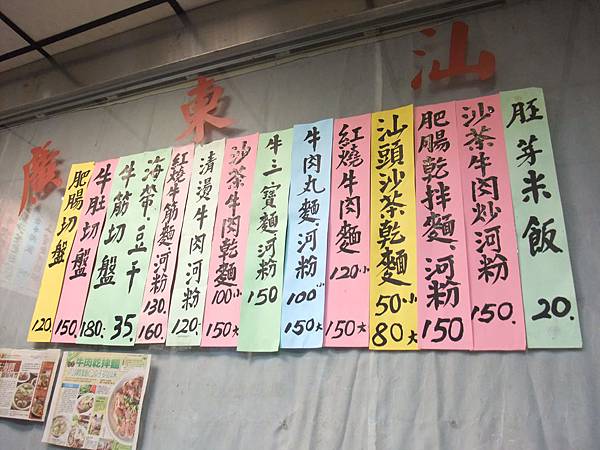 汕
東
廣
胚芽米飯 20.
沙茶牛肉炒河粉 150.
肥腸乾拌麵、河粉 150
汕頭沙茶乾麵 50小 80大
紅燒牛肉麵 120小 150大
牛肉丸麵、河粉 100小 150大
牛三寶麵、河粉 150
沙茶牛肉乾麵 100小 150大
清燙牛肉河粉 120.
紅燒牛筋麵、河粉 130. 160.
海帶、豆干 35.
牛筋切盤 180.
牛肚切盤 150.
肥腸切盤 120.
牛肉乾拌麵